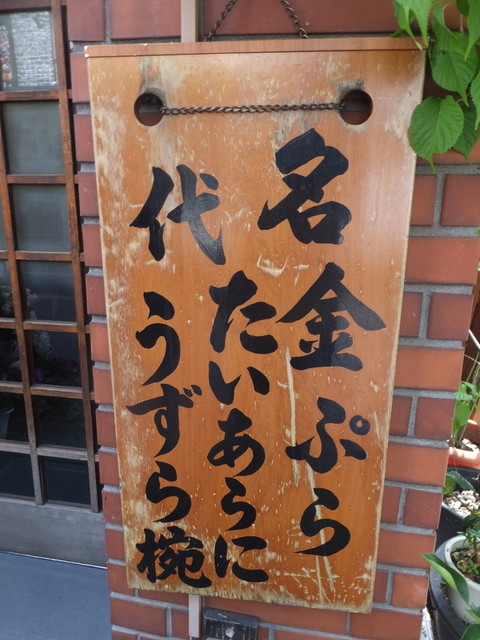 名金ぷら
代たいあらに
うずら椀